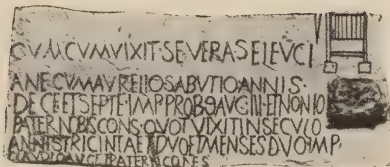 CVM CVM VIXIT · SEVERA SELEVCI
ANE CVM AVRELIO SABVTIO ANNIS ·
DECE ET SEPTE · IMP PROBO AVG III ET NONIO
PATERNO BIS CONS QVOT VIXIT IN SECVLO
ANNIS TRICINTA ET DVO ET MENSES DVO IMP ·
PROBO AVG ET PATERNO CONS